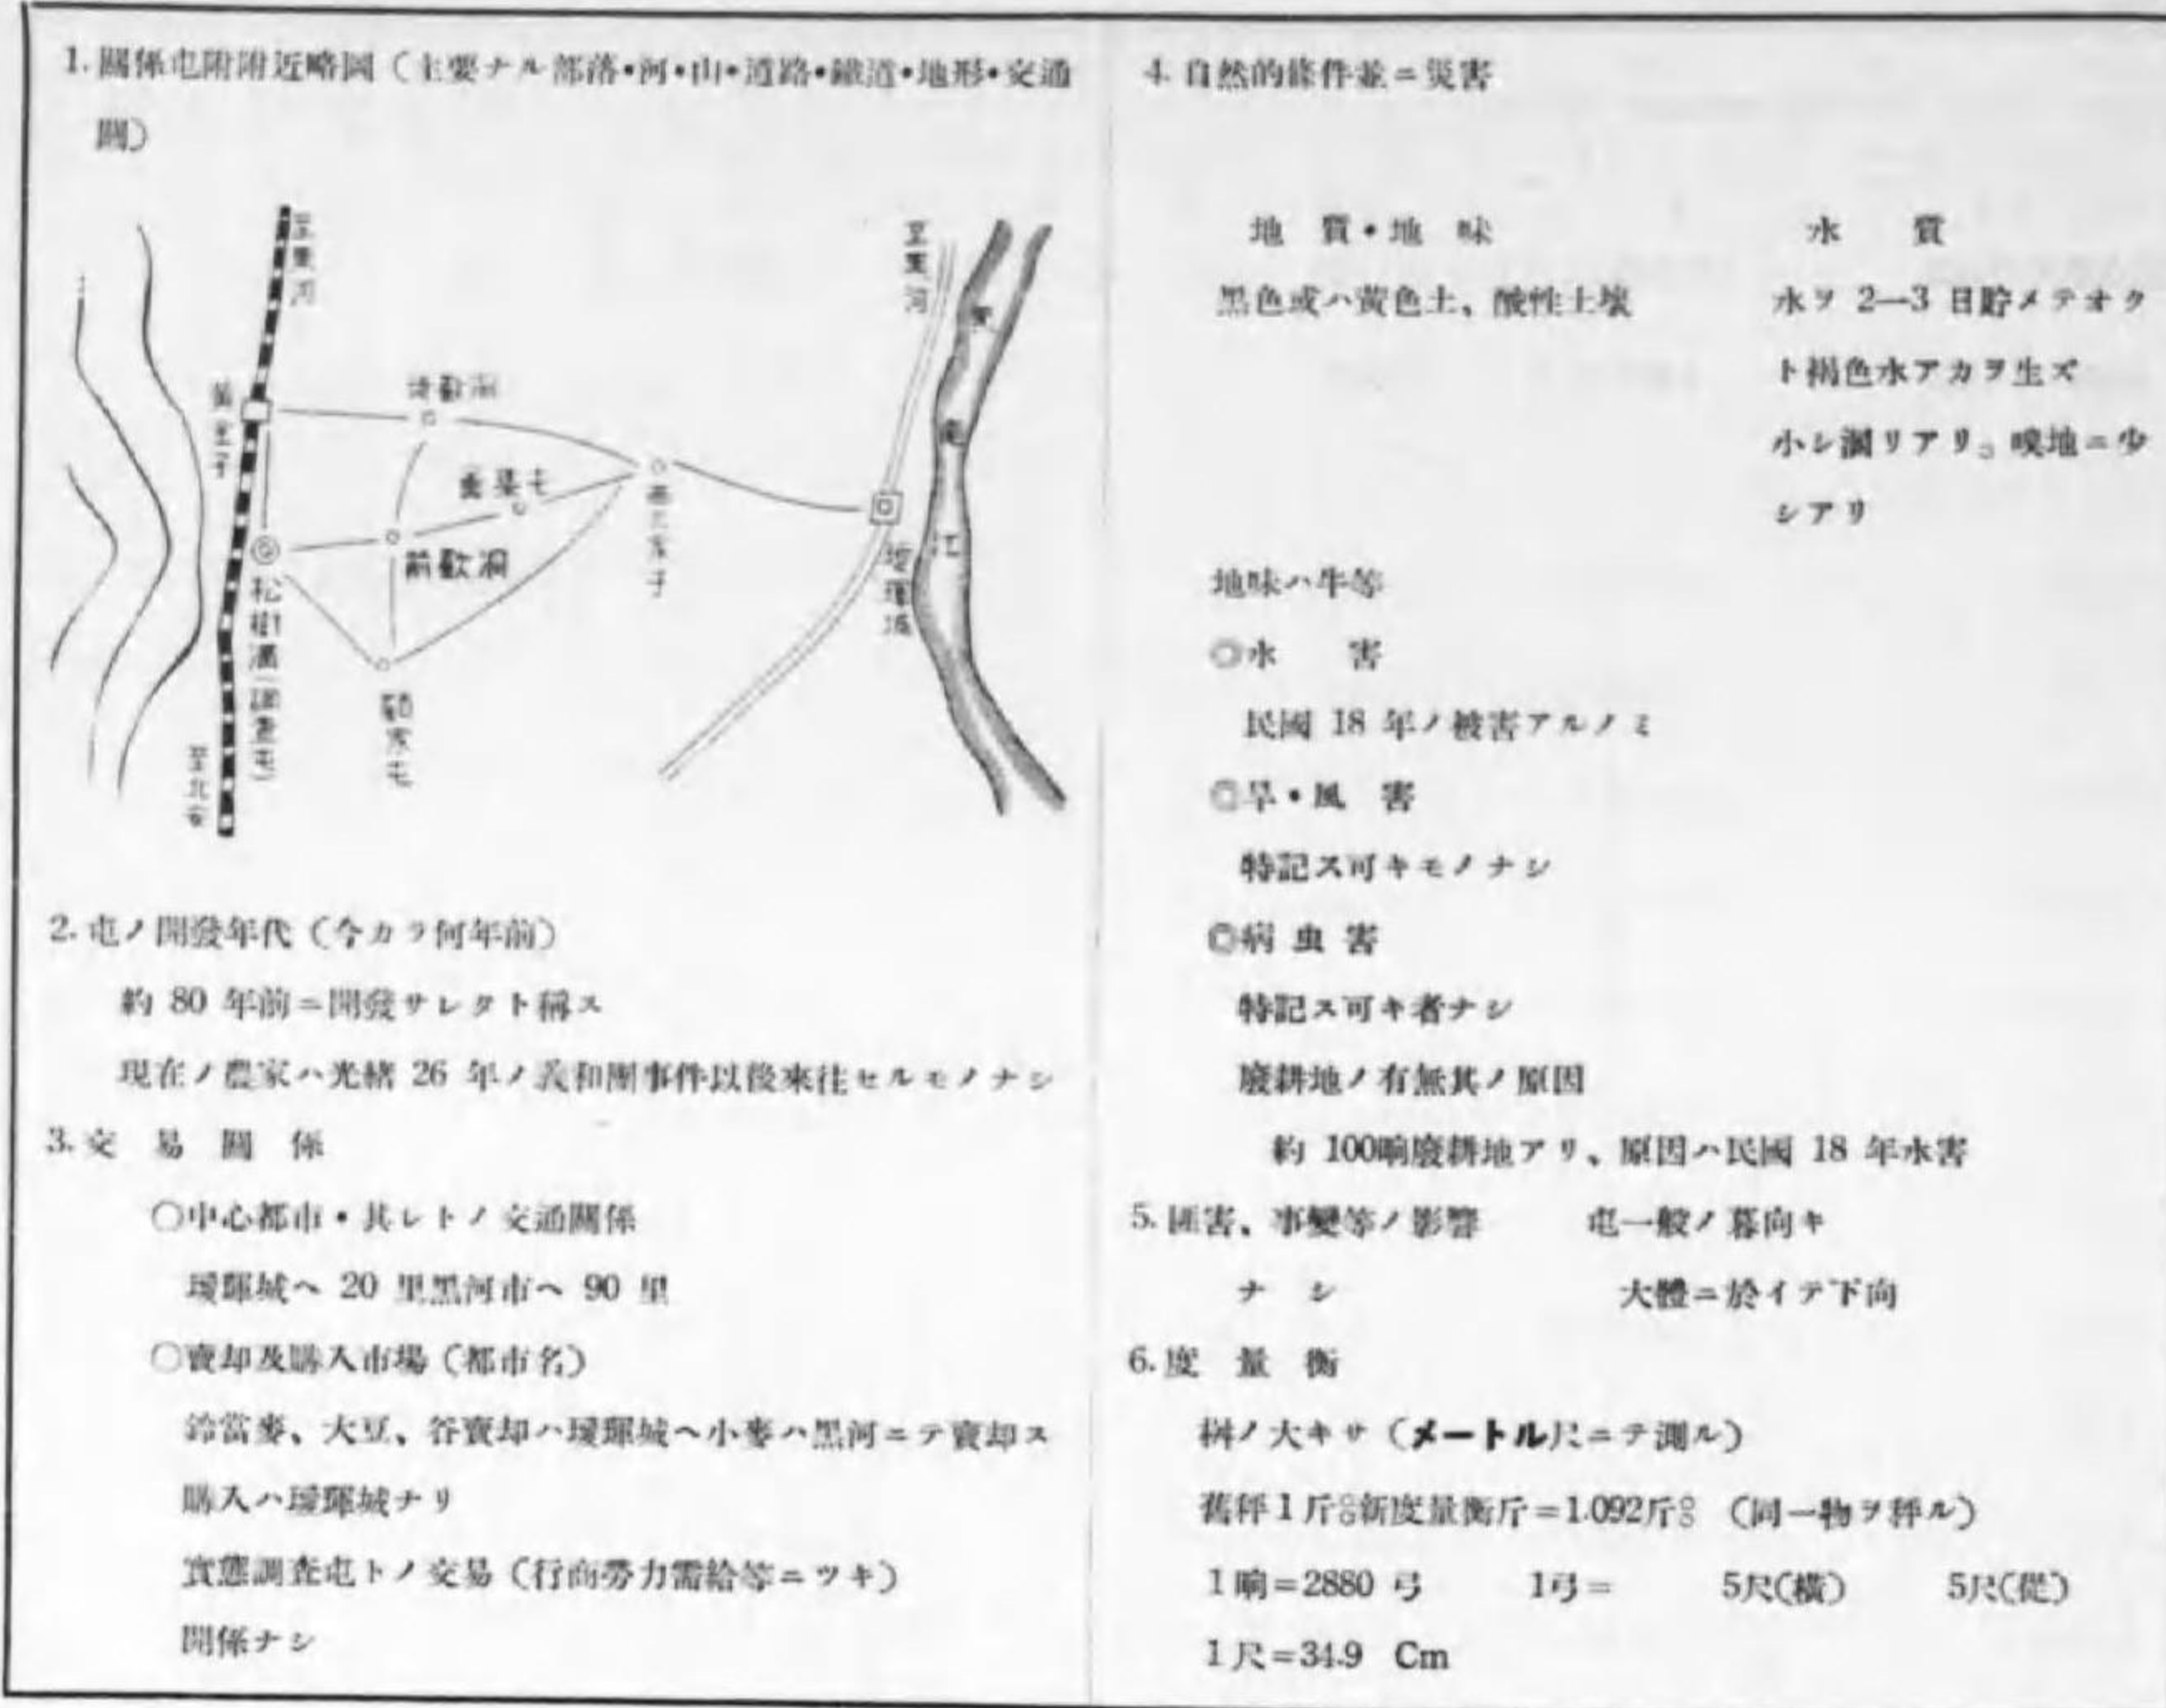 1. 關係屯附附近略圖（主要ナル部落•河•山•道路•鐵道•地形•交通
圖）
至黑河
至黑河
黑
龍
江
後歡洞
黃金子
前歡洞
西三家子
璦琿城
松樹溝（調查屯）
顧家屯
至北安
2. 屯ノ開發年代（今カラ何年前）
約 80 年前ニ開發サレタト稱ス
現在ノ農家ハ光緖 26 年ノ義和團事件以後來往セルモノナシ
3. 交 易 關 係
○中心都市•其レトノ交通關係
璦琿城ヘ 20 里黑河市ヘ 90 里
○賣却及購入市場（都市名）
鈴當麥、大豆、谷賣却ハ璦琿城ヘ小麥ハ黑河ニテ賣却ス
購入ハ璦琿城ナリ
實態調查屯トノ交易（行商勞力需給等ニツキ）
開係ナシ
4. 自然的條件並ニ災害
地 質•地 味
黑色或ハ黃色土、酸性土壤
水 質
水ヲ 2—3 日貯メテオク
ト褐色水アカヲ生ズ
小シ濁リアリ。嘆地ニ少
シアリ
地味ハ牛等
◎水 害
民國 18 年ノ被害アルノミ
◎旱•風 害
特記ス可キモノナシ
◎病 虫 害
特記ス可キ者ナシ
廢耕地ノ有無其ノ原因
約 100晌廢耕地アリ、原因ハ民國 18 年水害
5. 匪害、事變等ノ影響 屯一般ノ暮向キ
ナ シ 大體ニ於イテ下向
6. 度 量 衡
桝ノ大キサ（メートル尺ニテ測ル）
舊秤1斤 新度量衡斤＝1.092斤 （同一物ヲ秤ル）
1晌＝2880 弓 1弓＝ 5尺（橫） 5尺（從）
1尺＝34.9 Cm